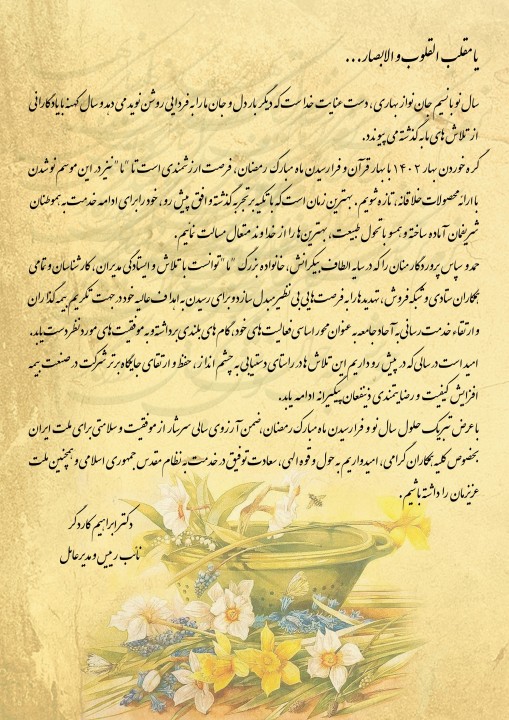 یا مقلب القلوب و الابصار...
سال نو با نسیم جان نواز بهاری، دست عنایت خداست که دیگر بار دل و جان ما را به فردایی روشن نوید می دهد و سال کهنه با یادگارانی
از تلاش های ما به گذشته می پیوندد.
گره خوردن بهار ۱۴۰۲ با بهار قرآن و فرارسیدن ماه مبارک رمضان، فرصت ارزشمندی است تا "ما" نیز در این موسم نو شدن
با ارائه محصولات خلاقانه، تازه شویم. بهترین زمان است که با تکیه بر تجربه گذشته و افق پیش رو، خود را برای ادامه خدمت به هموطنان
شریفمان آماده ساخته و همسو با تحول طبیعت، بهترین ها را از خداوند متعال مسالت نمائیم.
حمد و سپاس پروردگار منان را که در سایه الطاف بیکرانش، خانواده بزرگ "ما" توانست با تلاش و ایستادگی مدیران، کارشناسان و تمامی
همکاران ستادی و شبکه فروش، تهدیدها را به فرصت هایی بی نظیر مبدل سازد و برای رسیدن به اهداف عالیه خود در جهت تکریم بیمه گذاران
و ارتقاء خدمت رسانی به آحاد جامعه به عنوان محور اساسی فعالیت های خود، گام های بلندی برداشته و به موفقیت های مورد نظر دست یابد.
امید است در سالی که در پیش رو داریم این تلاش ها در راستای دستیابی به چشم انداز، حفظ و ارتقای جایگاه برتر شرکت در صنعت بیمه
افزایش کیفیت و رضایتمندی ذینفعان پیگیرانه ادامه یابد.
با عرض تبریک حلول سال نو و فرارسیدن ماه مبارک رمضان، ضمن آرزوی سالی سرشار از موفقیت و سلامتی برای ملت ایران
بخصوص کلیه همکاران گرامی، امیدواریم به حول و قوه الهی، سعادت توفیق در خدمت به نظام مقدس جمهوری اسلامی و همچنین ملت
عزیزمان را داشته باشیم.
دکتر ابراهیم کاردگر
نائب رییس و مدیرعامل